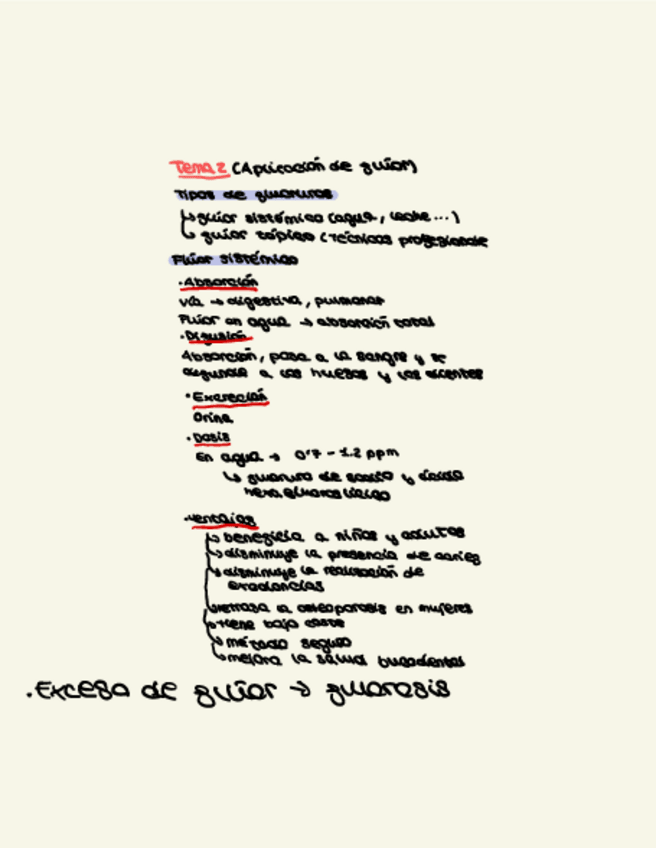 Tema 2 (Aplicación de flúor)
Tipos de fluoruros
↳ flúor sistémico (agua, leche...)
↳ flúor tópico (técnicas profesionale
Flúor sistémico
· Absorción
vía → digestiva, pulmonar
Flúor en agua → absorción total
· Difusión
Absorción, pasa a la sangre y se
difunde a los huesos y los dientes
· Excreción
Orina
· Dosis
En agua → 0'7 - 1.2 ppm
↳ fluoruro de sodio y ácido
hexafluorosilícico
· Ventajas
↳ beneficia a niños y adultos
↳ disminuye la presencia de caries
↳ disminuye la realización de
exodoncias
↳ retrasa la osteoporosis en mujeres
↳ tiene bajo coste
↳ método seguro
↳ mejora la salud bucodental
· Exceso de flúor → fluorosis